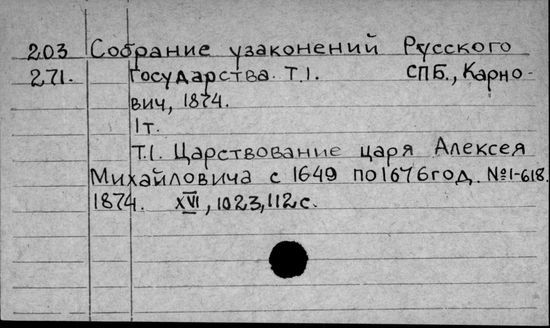 203 Собрание узаконений Русского
271. Государства. Т.1. СПБ., Карно-
вич, 1874.
1т.
Т.1. Царствование царя Алексея
Михайловича с 1649 по 1676 год. №1-618.
1874. XVI, 1023, 112 с.